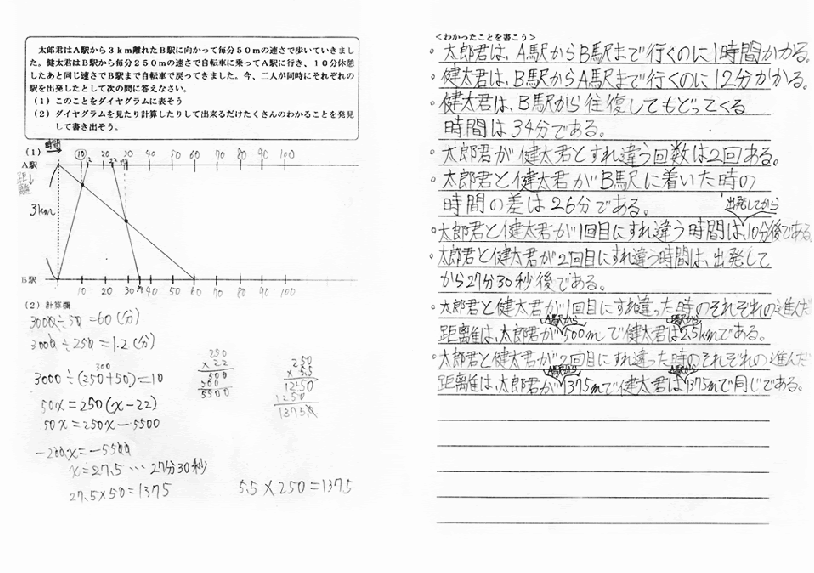 太郎君はA駅から3km離れたB駅に向かって毎分50mの速さで歩いていきまし
た。健太君はB駅から毎分250mの速さで自転車に乗ってA駅に行き、10分休憩
したあと同じ速さでB駅まで自転車で戻ってきました。今、二人が同時にそれぞれの
駅を出発したとして次の問に答えなさい。
(1) このことをダイヤグラムに表そう
(2) ダイヤグラムを見たり計算したりして出来るだけたくさんのわかることを発見
して書き出そう。
(1) 時間
10 20 30 40 50 60 70 80 90 100
A駅
3km
B駅
10 20 30 40 50 60 70 80 90 100
(2) 計算欄
3000÷50=60(分)
3000÷250=12(分)
3000÷(250+50)=10
300
50x=250(x-22)
50x=250x-5500
-200x=-5500
x=27.5 … 27分30秒
27.5×50=1375
250
×22
500
500
5500
250
×5.5
1250
1250
13750
5.5×250=1375
<わかったことを書こう>
・太郎君は、A駅からB駅まで行くのに1時間かかる。
・健太君は、B駅からA駅まで行くのに12分かかる。
・健太君は、B駅から往復してもどってくる
時間は34分である。
・太郎君が健太君とすれ違う回数は2回ある。
・太郎君と健太君がB駅に着いた時の
時間の差は26分である。
出発してから
・太郎君と健太君が1回目にすれ違う時間は、10分後である
・太郎君と健太君が2回目にすれ違う時間は、出発して
から27分30秒後である。
・太郎君と健太君が1回目にすれ違った時のそれぞれの進んだ
距離は、太郎君が500mで健太君は2.5kmである。
太郎君と健太君が2回目にすれ違った時のそれぞれの進んだ
距離は、太郎君が1375mで健太君は1375mで同じである。